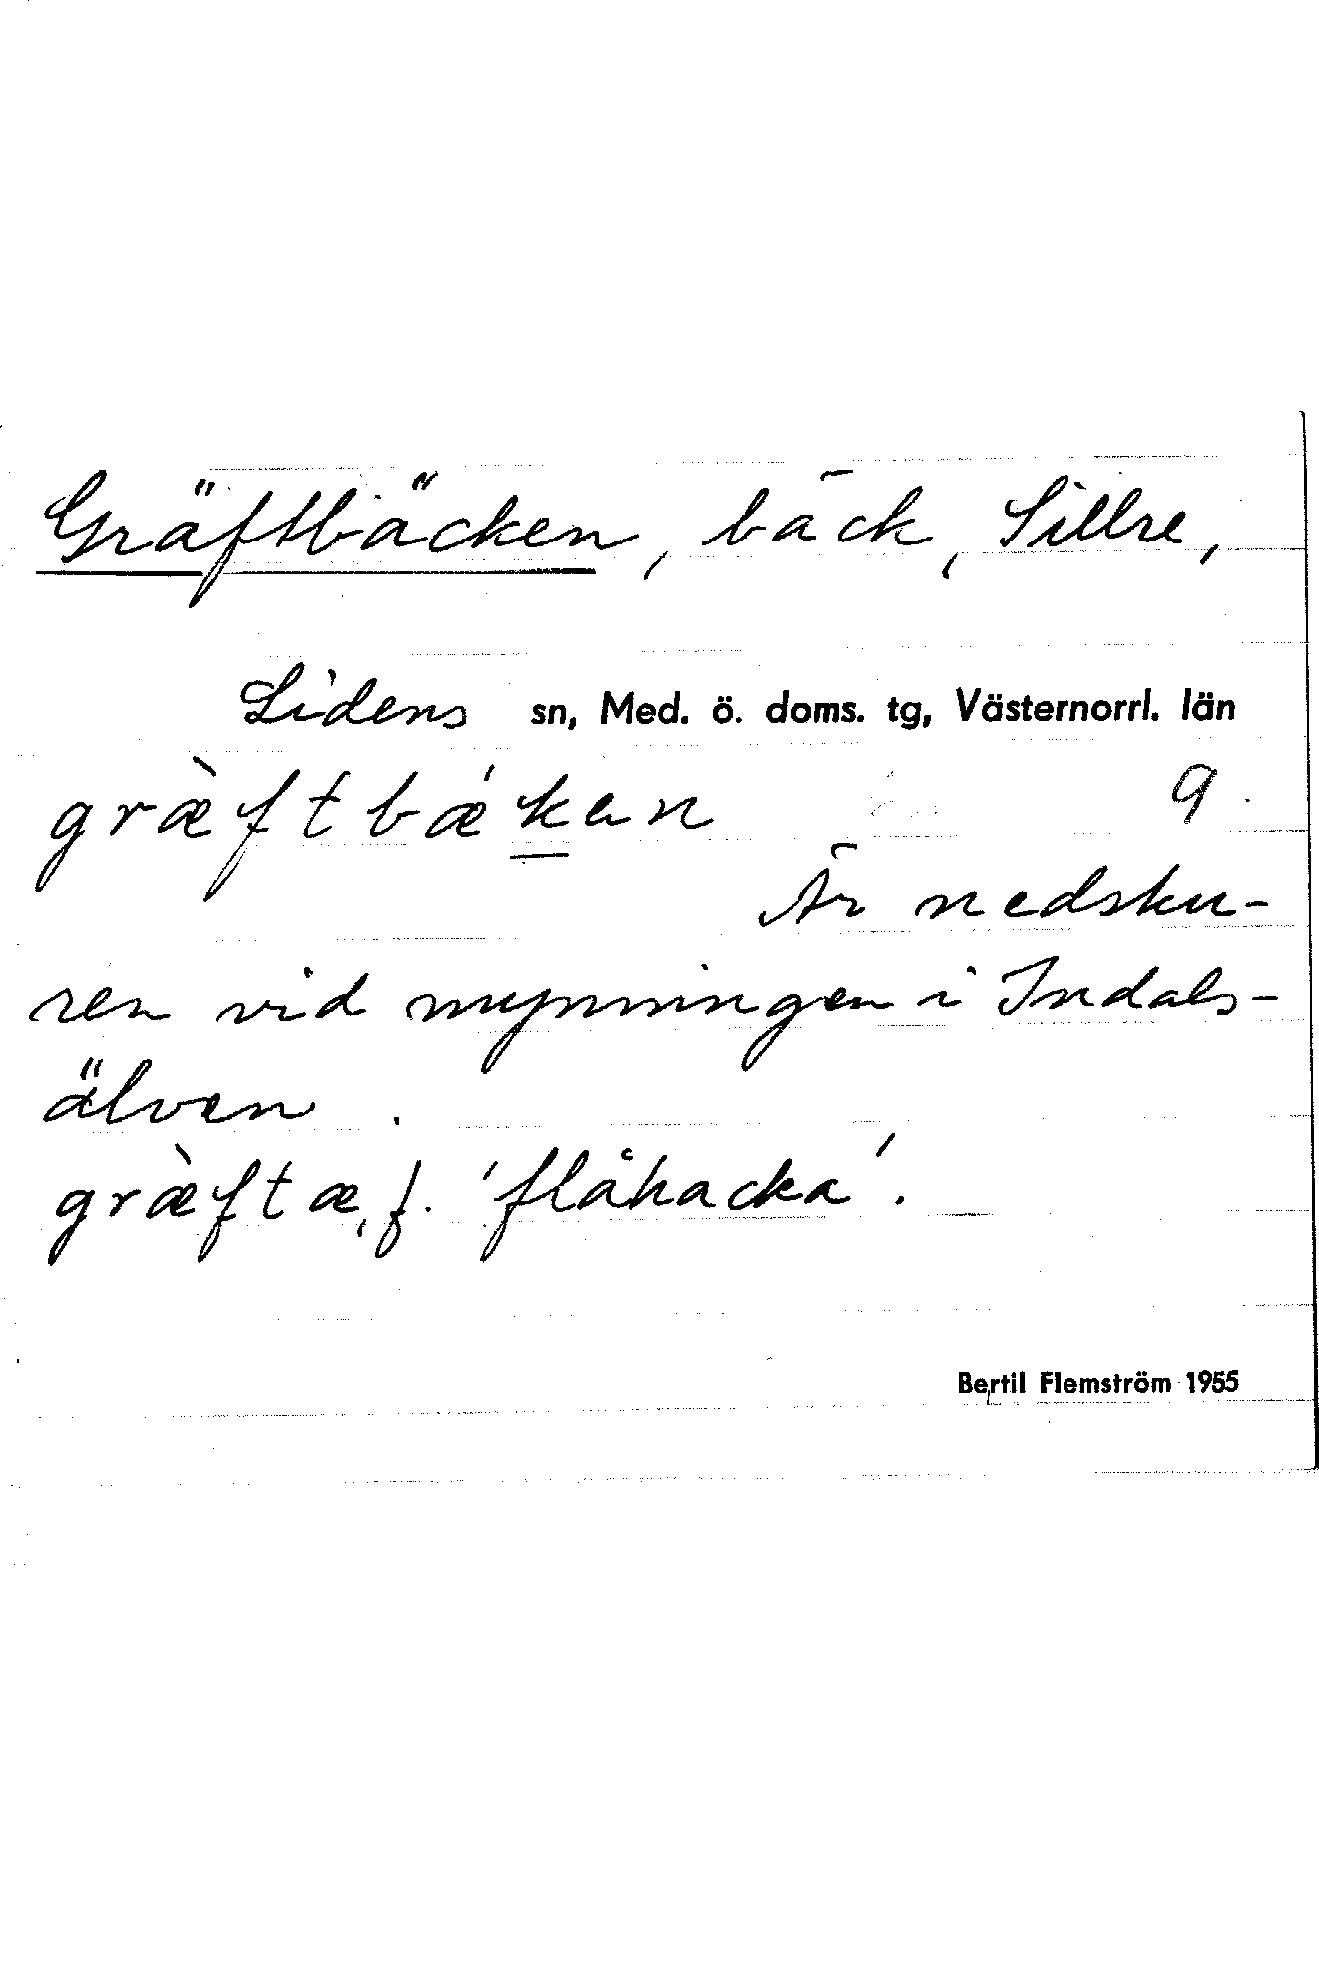 Gräftbäcken, bäck, Sillre,
Lidens sn, Med. ö. doms. tg, Västernorrl. län
græ̀ftbǽken 9
Är nedsku-
ren vid mynningen i Indals-
älven.
græ̀ftæ, f. 'flåhacka'.
Bertil Flemström 1955